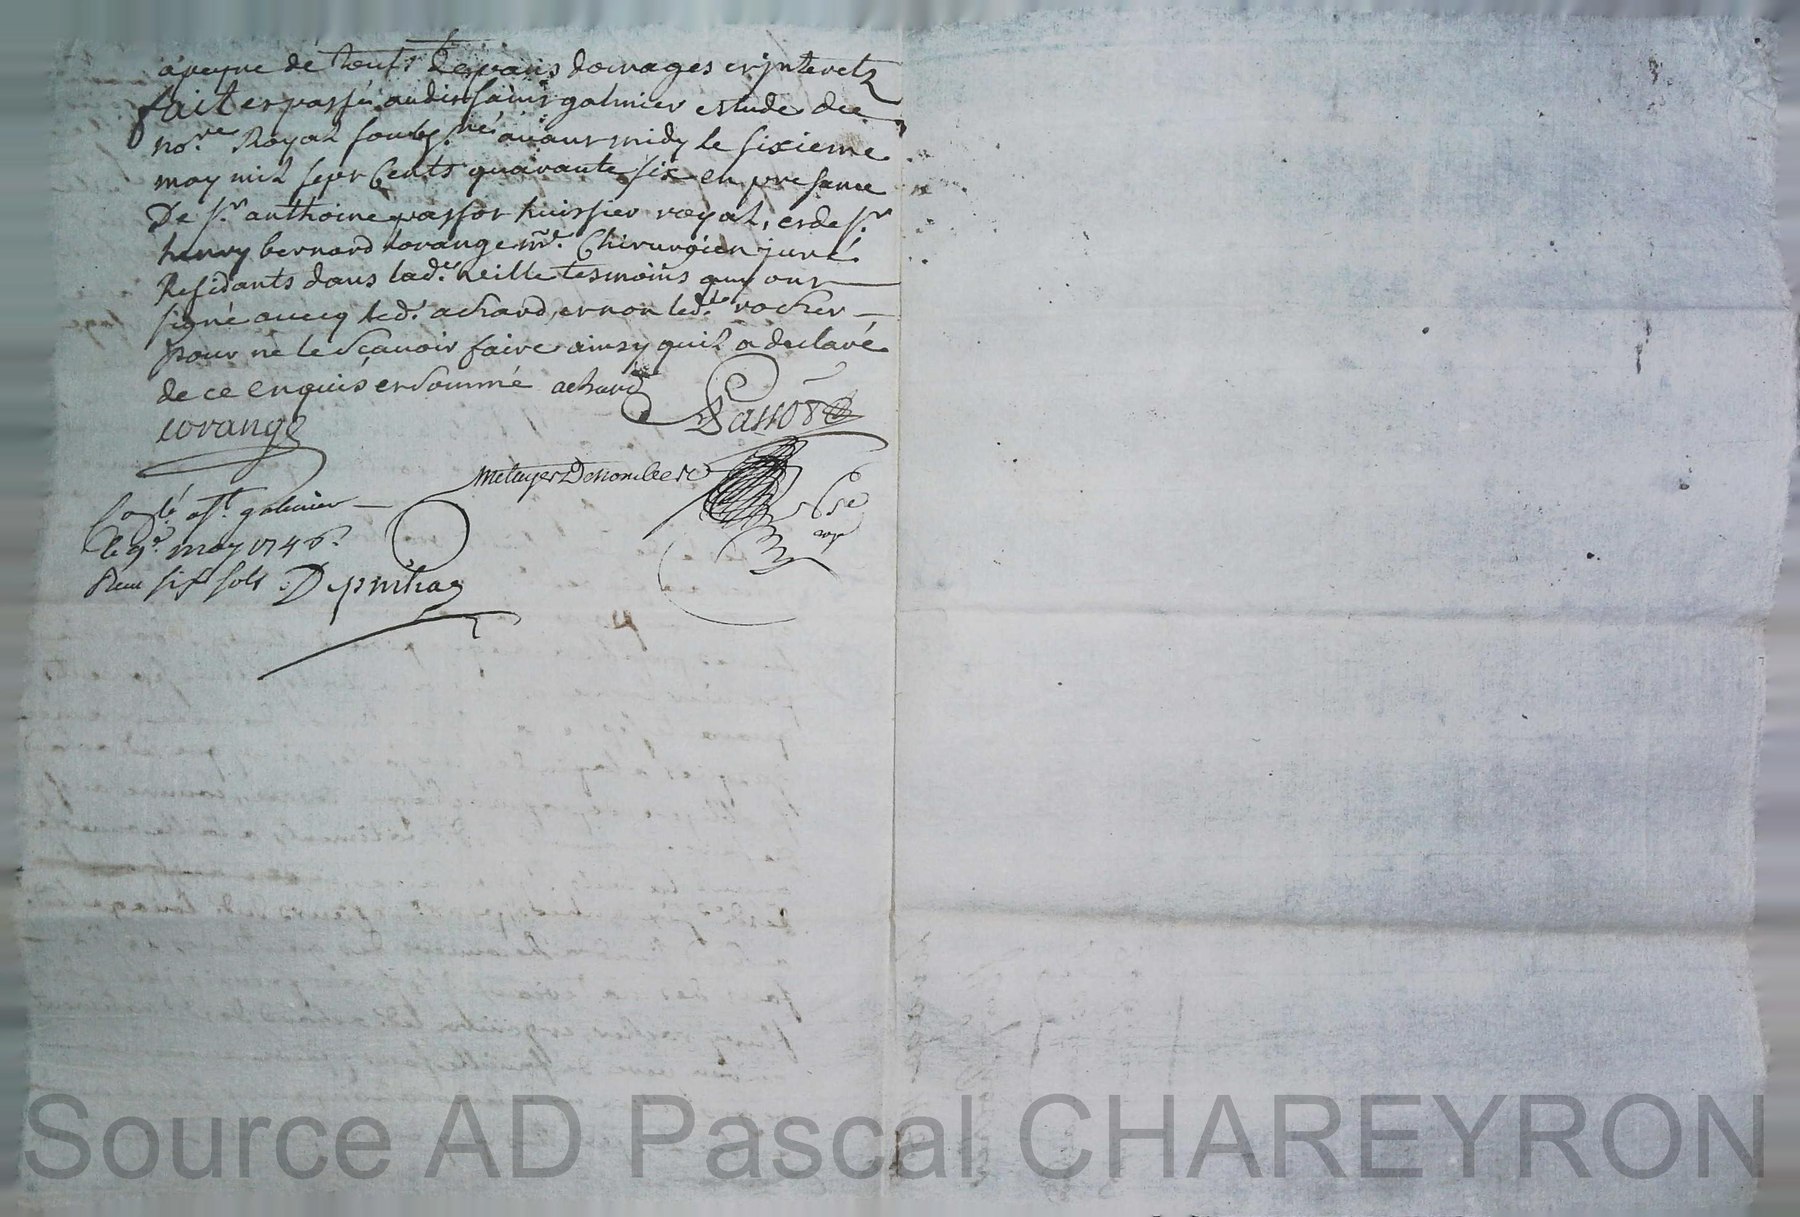 a peyne de touts depans domages et jnteretz
fait et passé audit saint galmier estude du
no.re Royal soubs.né auant midy le sixieme
may mil sept Cents quarante six en presance
De s.r anthoine passot huissier royal, et de s.r
henry bernard lorange m.e Chirurgien juré
Residants dans lad.e ville tesmoins quy ont
signé auecq led.t achard, et non led.t rocher
pour ne le sçauoir faire ainsy quil a declaré
de ce enquis et sommé achard
lorange Passot
Metayer
Con.lé a s.t galmier
le 9.e may 1746.
Receu six sols
Source AD Pascal CHAREYRON